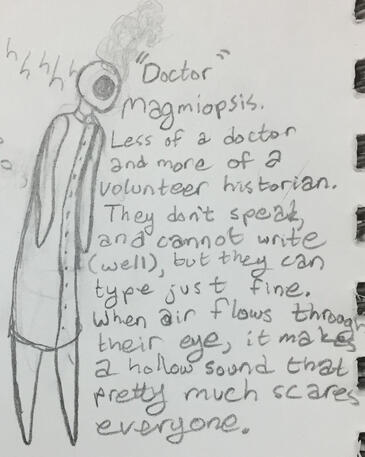 hhhhh
"Doctor"
Magmiopsis.
Less of a doctor
and more of a
volunteer historian.
They don't speak,
and cannot write
(well), but they can
type just fine.
When air flows through
their eye, it makes
a hollow sound that
pretty much scares
everyone.